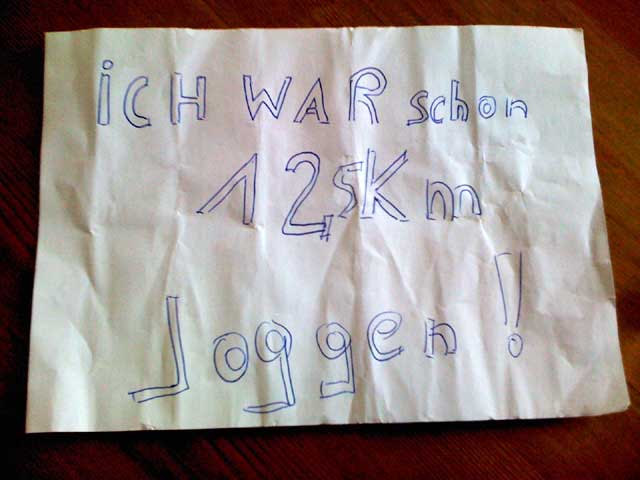 iCH WAR schon
12,5Km
Joggen!